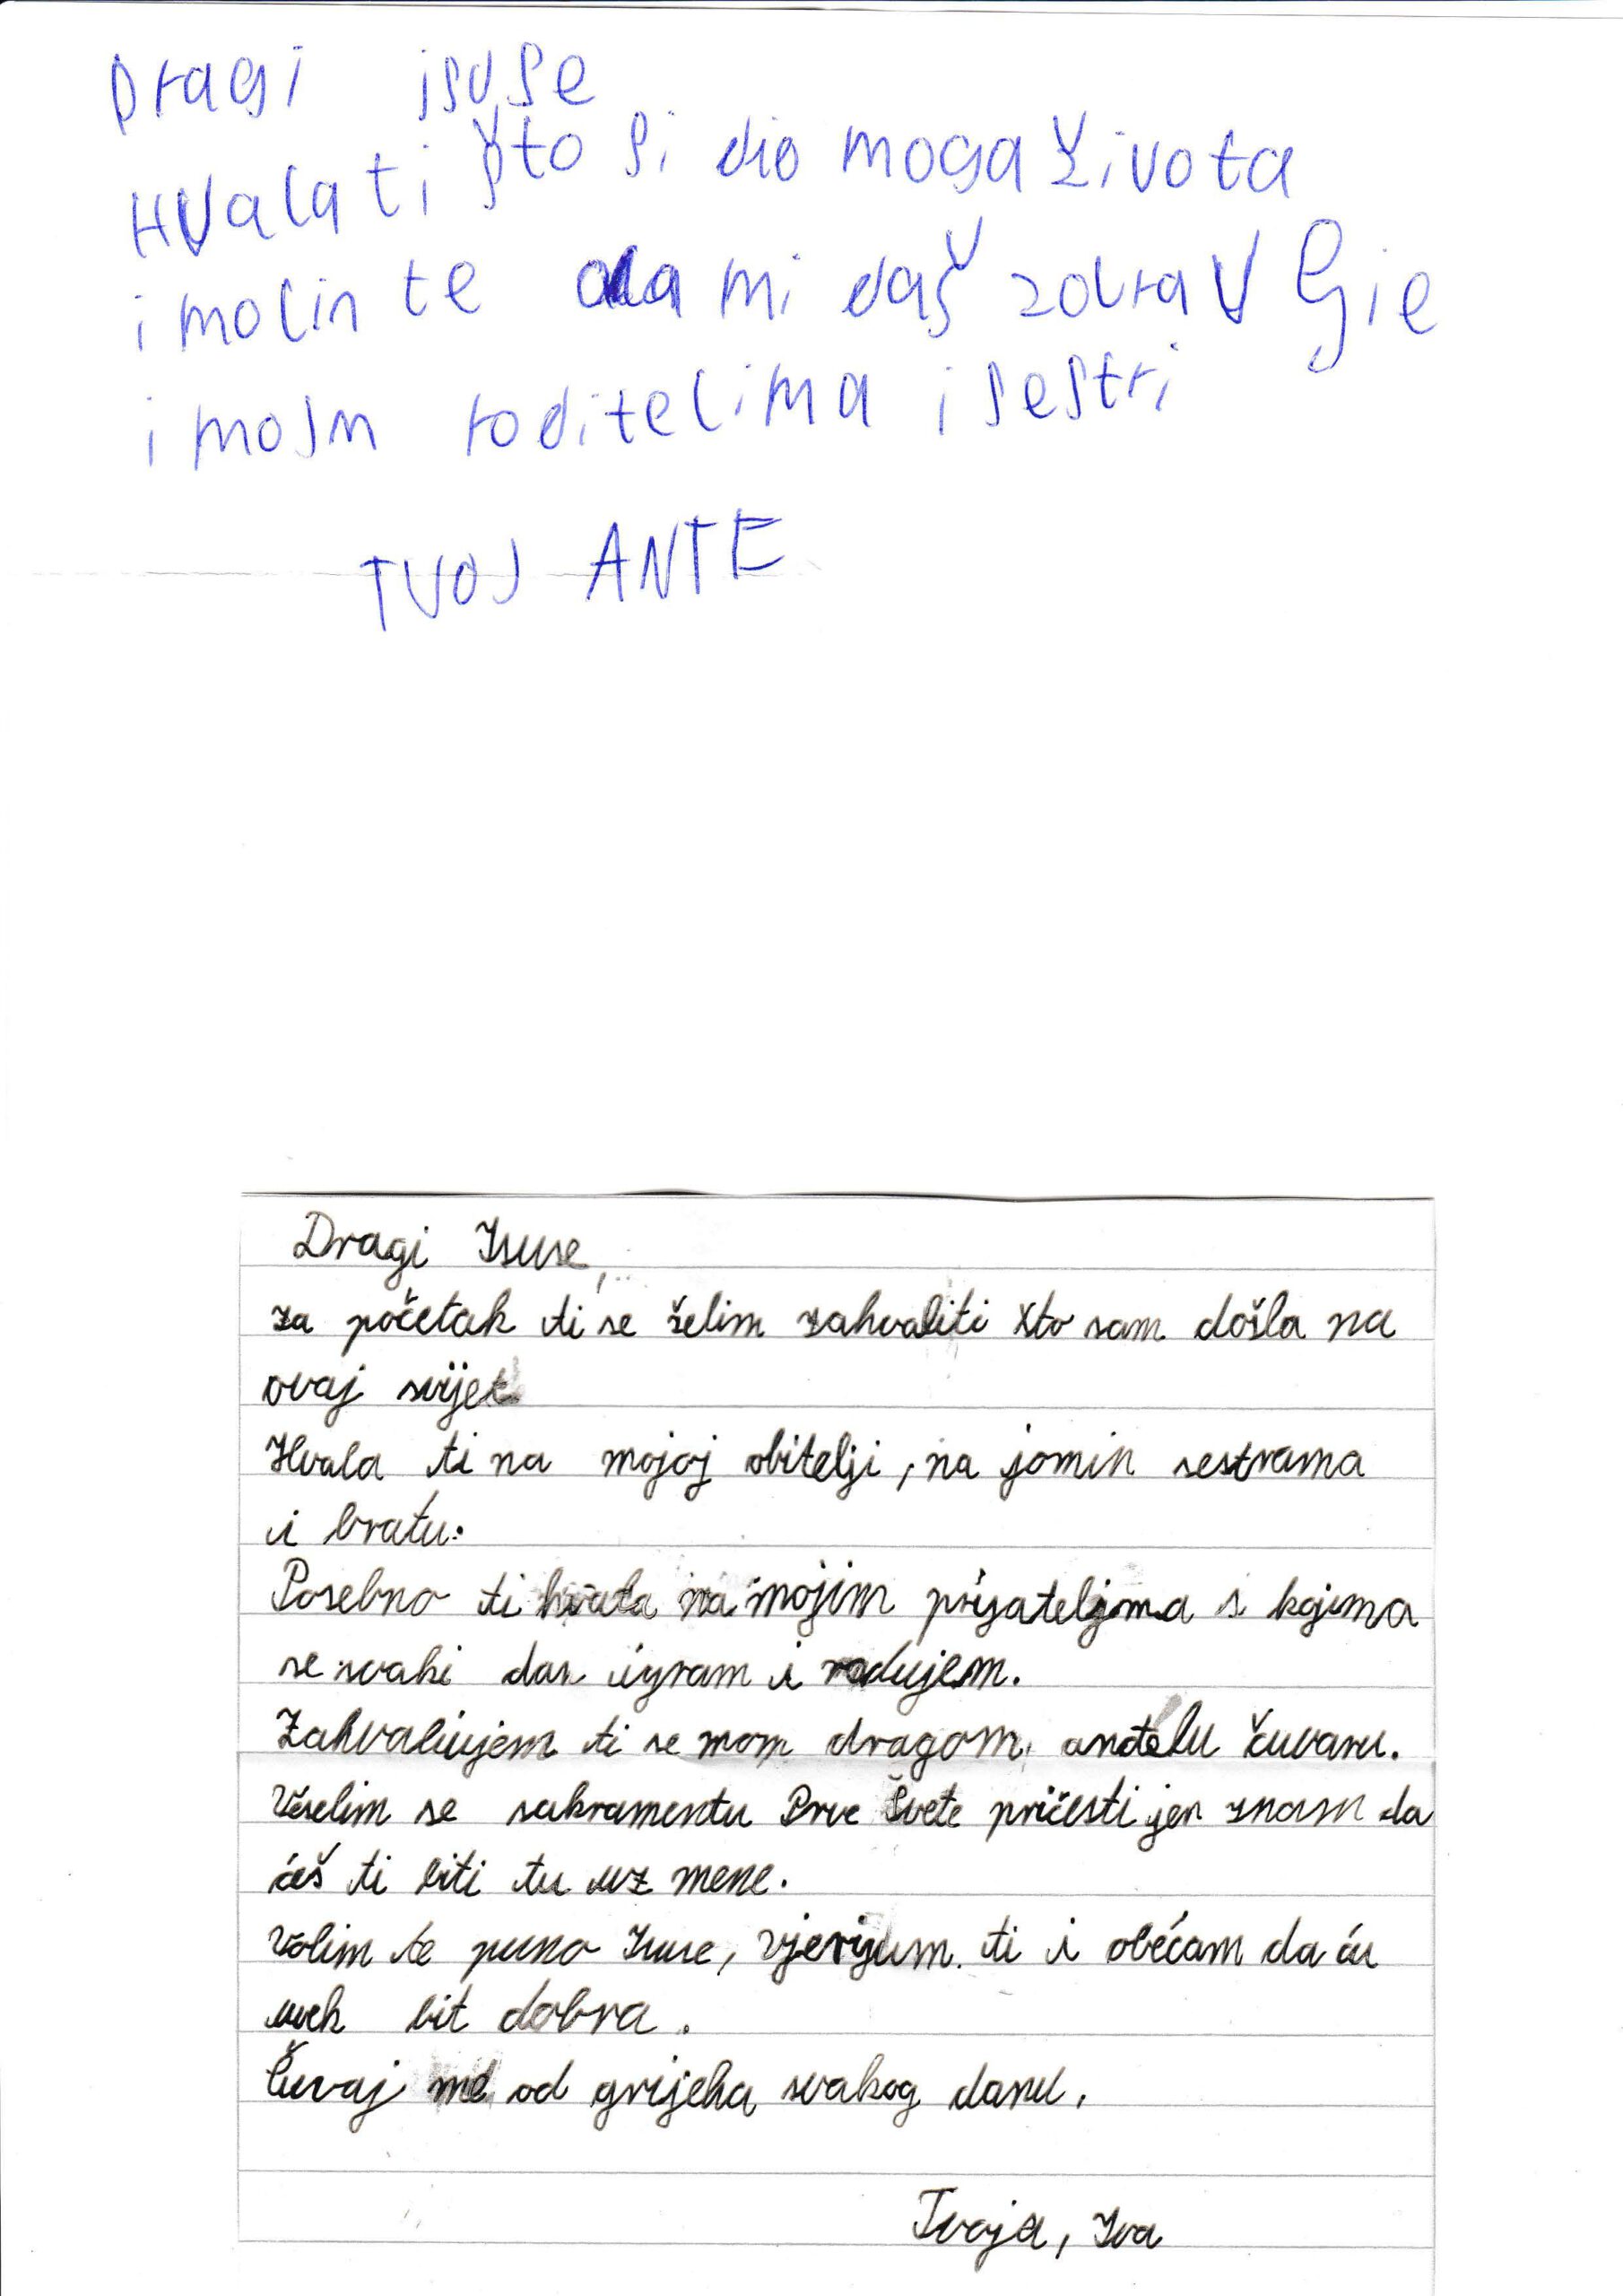 Dragi isuse
Hvala ti što si dio moga života
i molin te da mi daš zdravlje
i mojn roditelima i sestri
TVOJ ANTE
Dragi Isuse,
za početak ti se želim zahvaliti što sam došla na
ovaj svijet
Hvala ti na mojoj obitelji, na jomin sestrama
i bratu.
Posebno ti hvala na mojim prijateljima s kojima
se svaki dan igram i radujem.
Zahvaljujem ti se mom dragom anđelu čuvaru.
Veselim se sakramentu Prve Svete pričesti jer znam da
ćeš ti biti tu uz mene.
Volim te puno Isuse, vjerujem ti i obećam da ću
uvek bit dobra.
Čuvaj me od grijeha svakog danu.
Tvoja, Iva